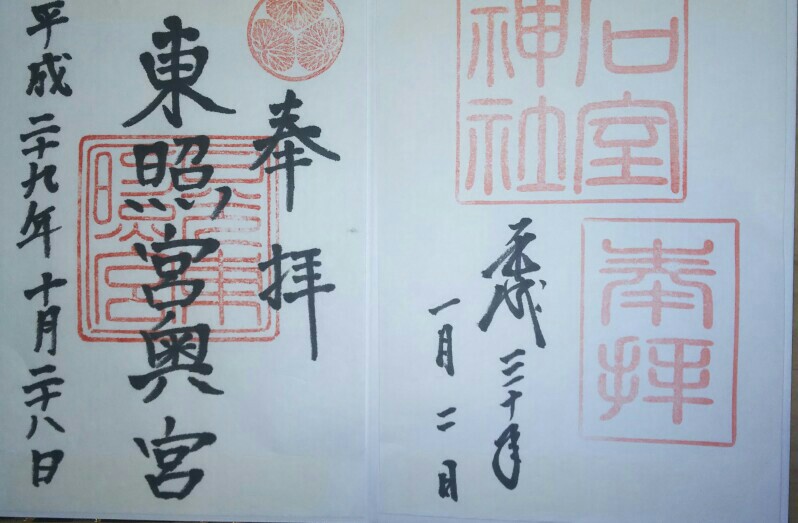 石室
神社
奉拝
平成三十年
一月二日
奉拝
東照宮奥宮
平成二十九年十月二十八日